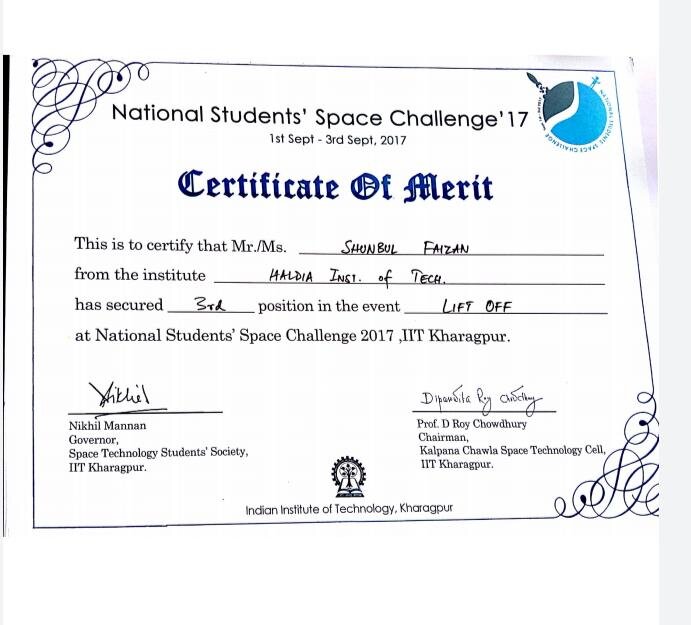 National Students' Space Challenge'17
1st Sept - 3rd Sept, 2017
NATIONAL STUDENTS SPACE CHALLENGE
Certificate Of Merit
This is to certify that Mr./Ms. SHUNBUL FAIZAN
from the institute HALDIA INST. of TECH.
has secured 3rd position in the event LIFT OFF
at National Students' Space Challenge 2017 ,IIT Kharagpur.
Nikhil
Dipanwita Roy Chowdhury
Nikhil Mannan
Governor,
Space Technology Students' Society,
IIT Kharagpur.
Prof. D Roy Chowdhury
Chairman,
Kalpana Chawla Space Technology Cell,
IIT Kharagpur.
Indian Institute of Technology, Kharagpur